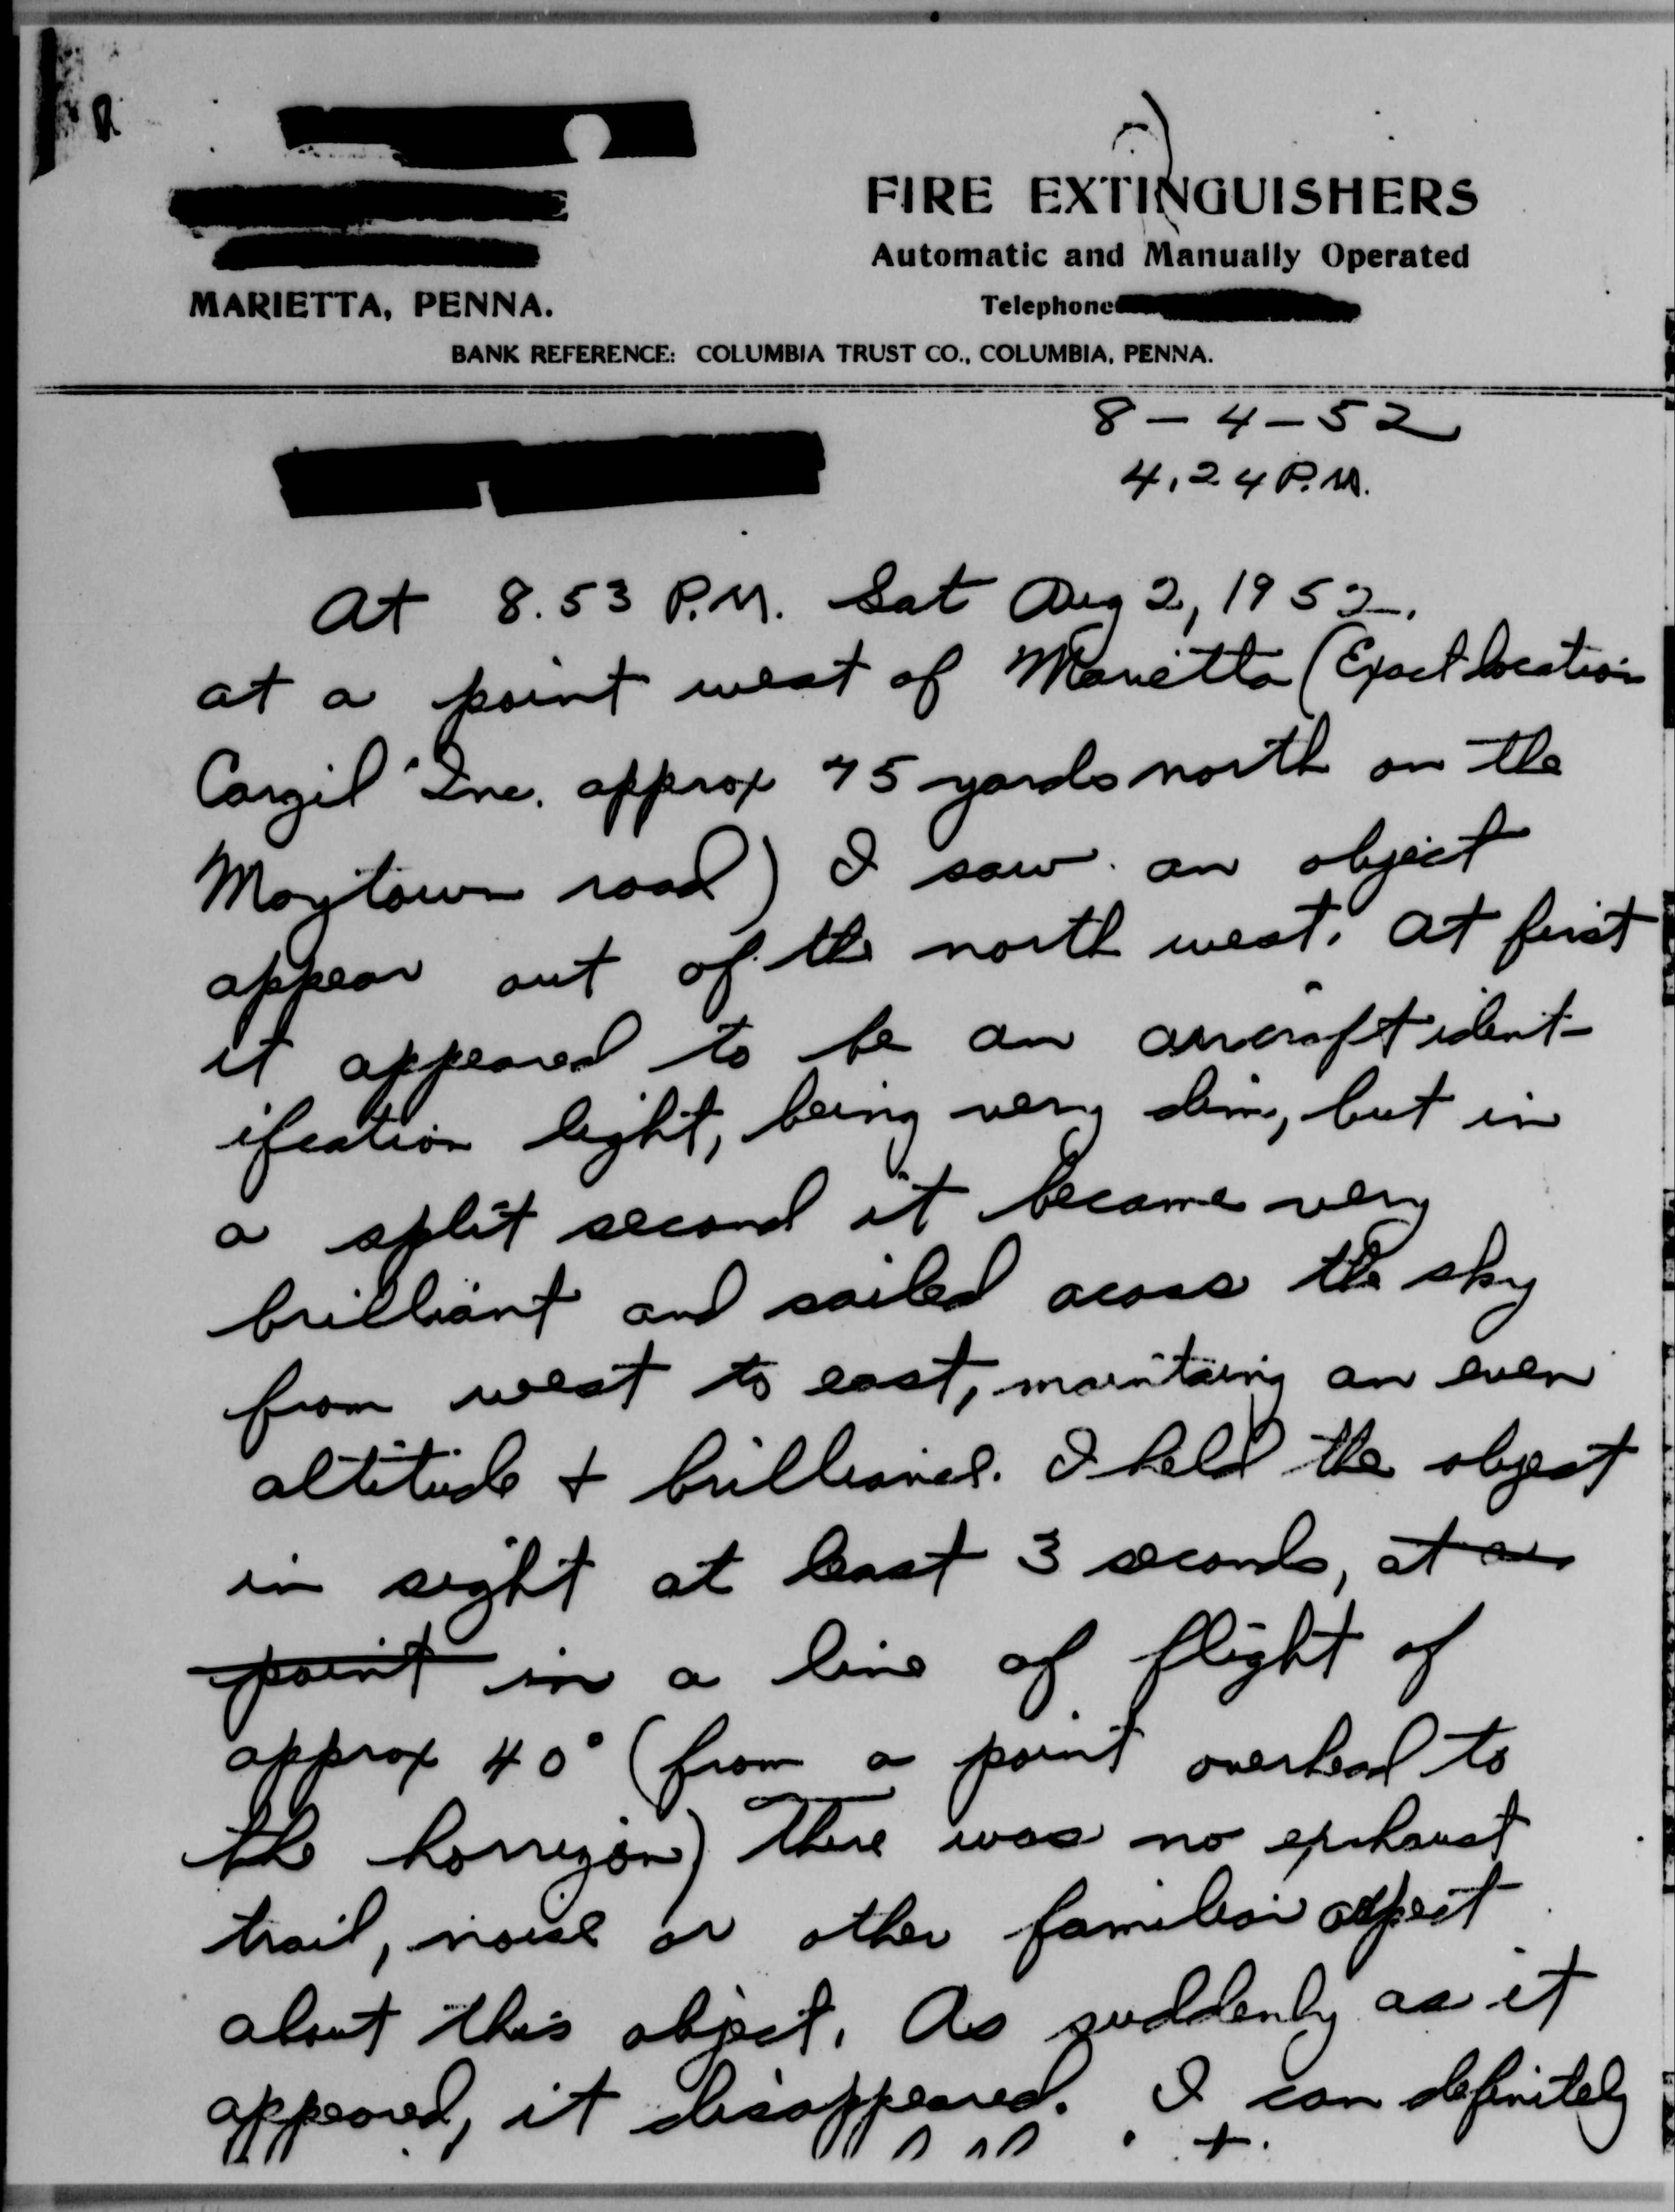 R
FIRE EXTINGUISHERS
Automatic and Manually Operated
MARIETTA, PENNA.
Telephone
BANK REFERENCE: COLUMBIA TRUST CO., COLUMBIA, PENNA.
8 - 4 - 52
4,24 P.M.
At 8.53 P.M. Sat Aug 2, 1952.
at a point west of Marietta (Exact location
Cargil Inc. approx 75 yards north on the
Maytown road) I saw an object
appear out of the north west. At first
it appeared to be an aircraft ident-
ification light, being very dim, but in
a split second it became very
brilliant and sailed acoss the sky
from west to east, maintaing an even
altitude + brilliance. I held the object
in sight at least 3 seconds, at a
point in a line of flight of
approx 40° (from a point overhead to
the horrizon) There was no exhaust
trail, noise or other familiar aspect
about this object. As suddenly as it
appeared, it disappeared. I can definitely